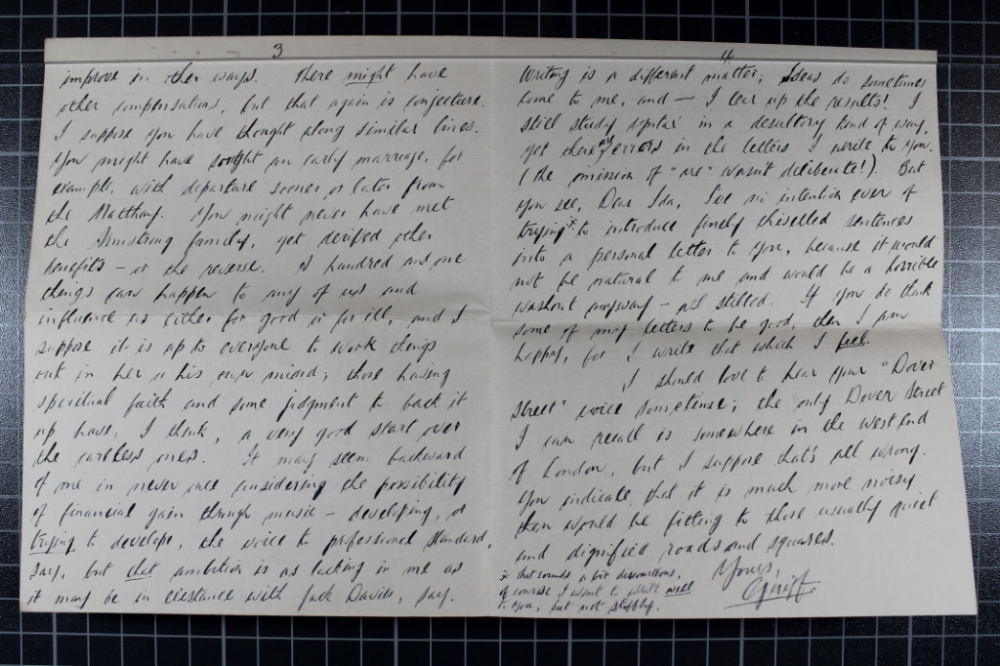 3
improve in other ways. There might have
other compensations, but that again is conjecture.
I suppose you have thought along similar lines.
You might have sought an early marriage, for
example, with departure sooner or later from
the You might never have met
the Armstrong family, yet derived other
benefits – or the reverse. A hundred and one
things can happen to any of us and
influence us either for good or for ill, and I
suppose it is up to everyone to work things
out in her or his own mind; those having
spiritual faith and some judgment to back it
up have, I think, a very good start over
the careless ones. It may seem backward
of me in never once considering the possibility
of financial gain through music – developing, or
trying to develope, the voice to professional standard,
say, but that ambition is as lacking in me as
it may be in existence with Jack Davies, say.
4
Writing is a different matter; Ideas do sometimes
come to me, and — I tear up the results! I
still study syntax in a desultory kind of way,
yet there are errors in the letters I write to you.
(the omission of "are" wasn't deliberate!). But
you see, Dear Ida, I've no intention ever of
trying* to introduce finely chiselled sentences
into a personal letter to you, because it would
not be natural to me and would be a horrible
washout anyway – all stilted. If you do think
some of my letters to be good, then I am
happy, for I write that which I feel.
I should love to hear your "Dover
Street" voice sometime; the only Dover Street
I can recall is somewhere in the West End
of London, but I suppose that's all wrong.
You indicate that it is much more noisy
than would be fitting to those usually quiet
and dignified roads and squares.
Yours,
* that sounds a bit
of course I want to write well
to you, but not stiffly.